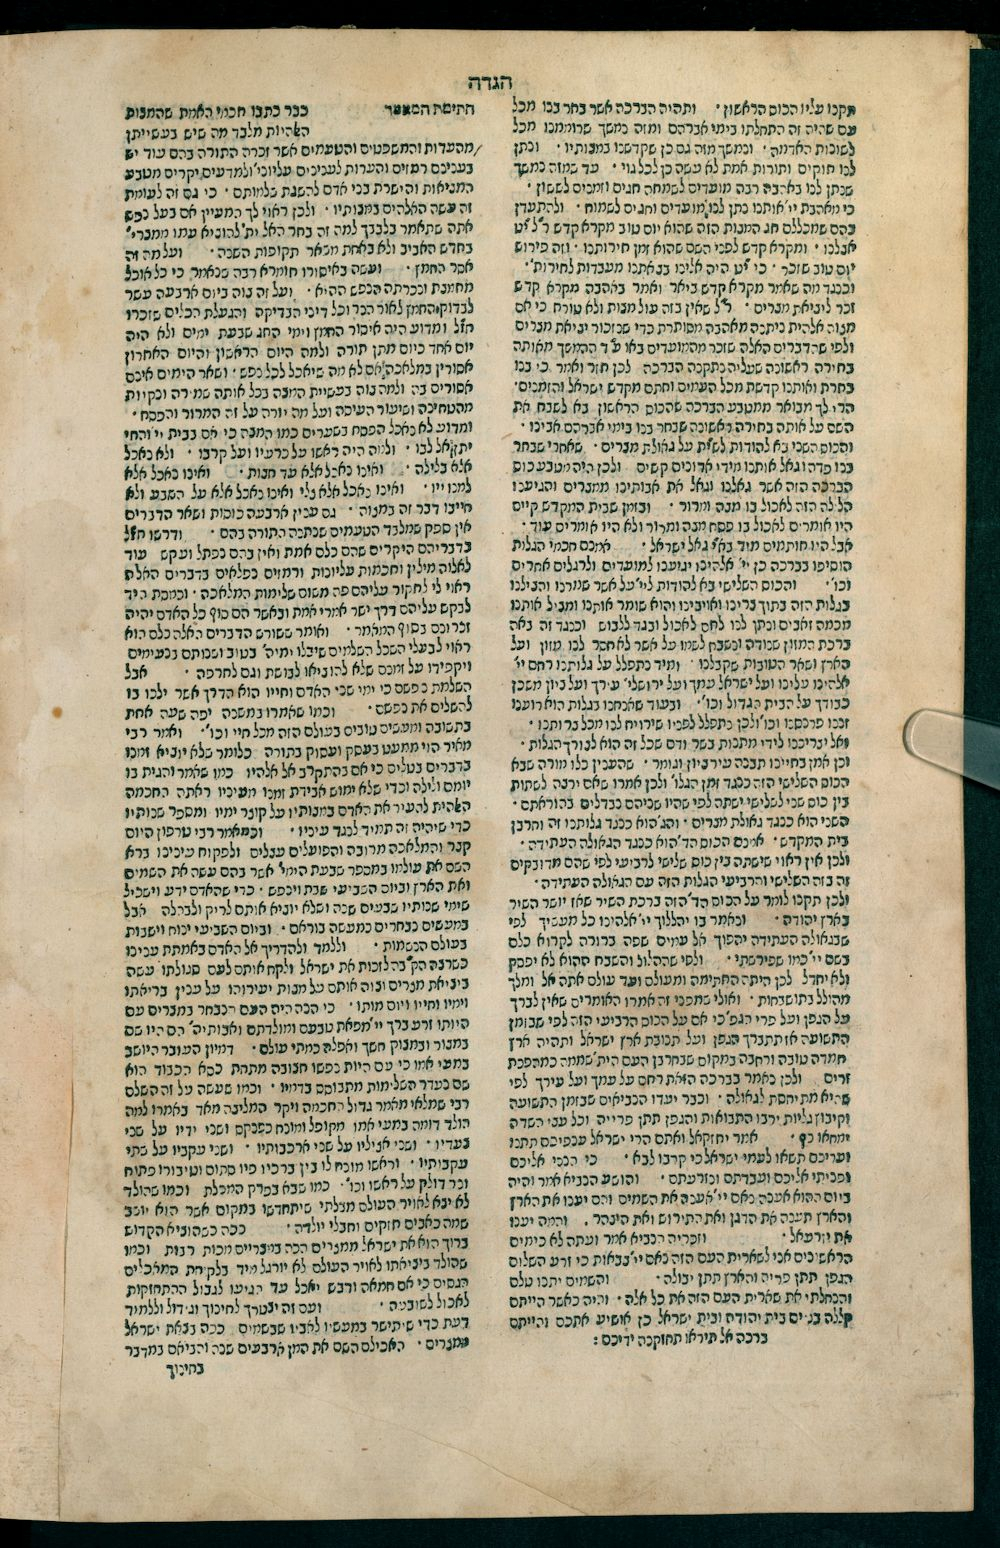 הגדה
תקנו עליו הכוס הראשון · ותהיה הברכה אשר בחר בנו מכל
עם שהיה זה התחלתו בימי אברהם ומזה נמשך שרוממנו מכל
לשונות האדמה · ונמשך מזה גם כן שקדשנו במצותיו · ונתן
לנו חוקים ותורות אמת לא עשה כן לכל גוי · עד שמזה נמשך
שנתן לנו באהבה רבה מועדים לשמחה חגים וזמנים לששון ·
כי מאהבת יי' אותנו נתן לנו מועדים וחגים לשמוח · ולהתעדן
בהם שמכללם חג המצות הזה שהוא יום טוב מקרא קדש ר"ל י"ט
אצלנו · ומקרא קדש לפני השם שהוא זמן חירותנו · וזה פירוש
יום טוב שזכר · כי י"ט היה אלינו בצאתנו מעבדות לחירות ·
וכנגד מה שאמר מקרא קדש ביאר ואמר באהבה מקרא קדש
זכר ליציאת מצרים · ר"ל שאין בזה עול מצות ולא טורח כי אם
מצוה אלהית ניתנה מאהבה מסותרת כדי שנזכור יציאת מצרים
ולפי שהדברים האלה שזכר מהמועדים באו ע"ד ההמשך מאותה
בחירה ראשונה שעליה נתקנה הברכה לכן חזר ואמר כי בנו
בחרת ואותנו קדשת מכל העמים וחתם מקדש ישראל והזמנים ·
הרי לך מבואר ממטבע הברכה שהכוס הראשון בא לשבח את
השם על אותה בחירה ראשונה שבחר בנו בימי אברהם אבינו ·
והכוס השני בא להודות לש"ית על גאולת מצרים · שאחרי שבחר
בנו פדה וגאל אותנו מידי אדונים קשים ולכן היה מטבע כוס
הברכה הזה אשר גאלנו וגאל את אבותינו ממצרים והגיענו
הלילה הזה לאכול בו מצה ומרור · ובזמן שבית המקדש קיים
היו אומרים לאכול בו פסח מצה ומרור ולא היו אומרים עוד ·
אבל היו חותמים מיד בא"י גאל ישראל · אמנם חכמי הגלות
הוסיפו בברכה כן יי' אלהינו יגיענו למועדים ולרגלים אחרים
וכו' · והכוס השלישי בא להודות ליי' על אשר שמרנו והצילנו
בגלות הזה בתוך צרינו ואויבינו והוא שומר אותנו ומציל אותנו
מכמה זאבים ונתן לנו לחם לאכול ובגד ללבוש וכנגד זה באה
ברכת המזון שנודה ונשבח לשמו על אשר לא חסר לנו מזון ועל
הארץ ושאר הטובות שקבלנו · ומיד נתפלל על גלותנו רחם יי'
אלהינו עלינו ועל ישראל עמך ועל ירושלי' עירך ועל ציון משכן
כבודך על הבית הגדול וכו' · ובעוד שאנחנו בגלות הוא רוענו
זננו פרנסנו וכו' ולכן נתפלל לפניו שירויח לנו מכל צרותנו ·
ואל יצריכנו לידי מתנות בשר ודם שכל זה הוא לצורך הגלות ·
וכן אמן בחיינו תבנה עיר ציון וגומר · שהענין כלו מורה שבא
הכוס השלישי הזה כנגד זמן הגלו' ולכן אמרו שאם ירצה לשתות
בין כוס שני לשלישי ישתה לפי שהיו שניהם נבדלים בהוראתם ·
השני הוא כנגד גאולת מצרים · והג' הוא כנגד גלותנו זה וחרבן
בית המקדש · אמנם הכוס הד' הוא כנגד הגאולה העתידה ·
ולכן אין ראוי שישתה בין כוס שלישי לרביעי לפי שהם מדובקים
זה בזה השלישי והרביעי הגלות הזה עם הגאולה העתידה ·
ולכן תקנו לומר על הכוס הד' הזה ברכת השיר שאז יושר השיר
בארץ יהודה · ונאמר בו יהללוך יי' אלהינו כל מעשיך לפי
שבגאולה העתידה יהפוך אל עמים שפה ברורה לקרוא כלם
בשם יי' כמו שפירשתי · ולפי שההלול והשבח ההוא לא יפסק
ולא יחדל לכן היתה החתימה ומעולם ועד עולם אתה אל ומלך
מהולל בתושבחות · ואולי שמפני זה אמרו האומרים שאין לברך
על הגפן ועל פרי הגפ' כי אם על הכוס הרביעי הזה לפי שבזמן
התשועה אז תתברך הגפן ועל תנובת ארץ ישראל ותהיה ארץ
חמדה טובה ורחבה במקום שבחרבן העם הית' שממה כמהפכת
זרים ולכן נאמר בברכה הזאת רחם על עמך ועל עירך לפי
שהיא מתיחסת לגאולה · וכבר יעדו הנביאים שבזמן התשועה
וקיבוץ גליות ירבו התבואות והגפן תתן פרייה וכל עצי השדה
ימחאו כף · אמר יחזקאל ואתם הרי ישראל ענפיכם תתנו
ופריכם תשאו לעמי ישראל כי קרבו לבא · כי הנני אליכם
ופניתי אליכם ונעבדתם ונזרעתם · והושע הנביא אמר והיה
ביום ההוא אענה נאם יי' אענה את השמים והם יענו את הארץ
והארץ תענה את הדגן ואת התירוש ואת היצהר · והמה יענו
את יזרעאל · וזכריה הנביא אמר ועתה לא כימים
הראשונים אני לשארית העם הזה נאם יי' צבאות כי זרע השלום
הגפן תתן פריה והארץ תתן יבולה · והשמים יתנו טלם
והנחלתי את שארית העם הזה את כל אלה · והיה כאשר הייתם
קללה בגוים בית יהודה ובית ישראל כן אושיע אתכם והייתם
ברכה אל תיראו תחזקנה ידיכם :
חתימת המאמר כבר כתבו חכמי האמת שהמצות
האלהיות מלבד מה שיש בעשייתן
מהעדות והמשפטים והטעמים אשר זכרה התורה בהם עוד יש
בענינם רמזים והערות לענינים עליוני' ולמדעים יקרים מטבע
המציאות והישרת בני אדם להשגת שלמותם · כי גם זה לעומת
זה עשה האלהים במצותיו · ולכן ראוי לך המעיין אם בעל נפש
אתה שתאמר בלבבך למה זה בחר האל ית' להוציא עמו ממצרי'
בחדש האביב ולא באחת משאר תקופות השנה · ועל מה זה
אסר החמץ · ועשה באיסורו חומרא רבה שנאמר כי כל אוכל
מחמצת ונכרתה הנפש ההיא · ועל זה צוה ביום ארבעה עשר
לבדוק החמץ לאור הנר וכל דיני הבדיקה והגעלת הכלים שזכרו
חז"ל ומדוע היה איסור החמץ וימי החג שבעת ימים ולא היה
יום אחד כיום מתן תורה ולמה היום הראשון והיום האחרון
אסורין במלאכה אם לא מה שיאכל לכל נפש · ושאר הימים אינם
אסורים בה ולמה צוה בעשיית המצה בכל אותה שמירה ונקיות
מהטחינה ושיעור העיסה ועל מה יורה על זה המרור והפסח ·
ומדוע לא נאכל הפסח בשערים כמו המצה כי אם בבית יי' והחי
יתן אל לבו · ולמה היה ראשו על כרעיו ועל קרבו · ולא נאכל
אלא בלילה · ואינו נאכל אלא עד חצות · ואינו נאכל אלא
למנוייו · ואינו נאכל אלא צלי ואינו נאכל אלא על השבע ולא
חייבו דבר זה במצוה · גם ענין ארבעה כוסות ושאר הדברים
אין ספק שמלבד הטעמים שנתנה התורה בהם · ודרשו חז"ל
בדבריהם היקרים שהם כלם אמת ואין בהם נפתל ועקש עוד
לאלוה מילין וחכמות עליונות ורמזים נפלאים בדברים האלה
ראוי לי לחקור עליהם פה משום שלימות המלאכה · ובמסת היד
לבקש עליהם דרך ישר אמרי אמת ובאשר הם סוף כל האדם יהיה
זכרונם בסוף המאמר · ואומר ששורש הדברים האלה כלם הוא
ראוי לבעלי השכל השלמים שיבלו ימיה' בטוב ושנותם בנעימים
ויקפידו על זמנם שלא להוציאו לבושת וגם לחרפה · אבל
השלמת נפשם כי ימי שני האדם וחייו הוא הדרך אשר ילכו בו
להשלים את נפשם · וכמו שאמרו במשנה יפה שעה אחת
בתשובה ומעשים טובים בעולם הזה מכל חיי וכו' · ואמר רבי
מאיר הוי ממעט בעסק ועסוק בתורה כלומר שלא יוציא זמנו
בדברים בטלים כי אם בהתקרב אל אלהיו כמו שאמר והגית בו
יומם ולילה וכדי שלא ימוש אבידת זמנו מעיניו ראתה החכמה
האלהית להעיר את האדם במצותיו על קוצר ימיו ומספר שנותיו
כדי שיהיה זה תמיד לנגד עיניו · וכמאמר רבי טרפון היום
קצר והמלאכה מרובה והפועלים עצלים ולפקוח עינינו ברא
השם את עולמו במספר שבעת הימי' אשר בהם עשה את השמים
ואת הארץ וביום השביעי שבת וינפש · כדי שהאדם ידע וישכיל
שימי שנותיו שבעים שנה ושלא יוציא אותם לריק ולבהלה אבל
במעשים נבחרים כמעשה בוראם · וביום השביעי ינוח וישבות
בעולם הנשמות · וללמד ולהדריך אל האדם באמתת ענינו
כשרצה הק"בה לזכות את ישראל ולקח אותם לעם סגולתו עשה
ביציאת מצרים וצוה אותם על מצות יעירוהו על ענין בריאתו
וימיו וחייו ויום מותו · כי הנה היה העם הנבחר במצרים עם
היותו זרע ברך יי' מפאת טבעם ומולדתם ואבותיה' הם היו שם
במצור ובמצוק חשך ואפלה כמתי עולם · דמיון העובר היושב
במעי אמו כי עם היות נפשו חצובה מתחת כסא הכבוד הוא
שם נעדר השלימות מתבוסס בדמיו · וכמו שעשה על זה השלם
רבי שמלאי מאמר גדול החכמה ויקר המליצה מאד באמרו למה
הולד דומה במעי אמו מקופל ומונח כפנקס ושני ידיו על שני
צעדיו · ושני אציליו על שני ארכבותיו · ושני עקביו על שתי
עקבותיו · וראשו מונח לו בין ברכיו פיו סתום וטיבורו פתוח
ונר דולק על ראשו וכו' · כמו שבא בפרק המפלת וכמו שהולד
לא יצא לאויר העולם מצלתי שיתחדשו במקום אשר הוא יושב
שמה כאבים חזקים וחבלי יולדה · ככה כשהוציא הקדוש
ברוך הוא את ישראל ממצרים הכה במצריים מכות רבות וכמו
שהולד ביציאתו לאויר העולם לא יורגל מיד בלקיחת המאכלים
הגסים כי אם חמאה ודבש יאכל עד הגיעו לגבול ההתחזקות
לאכול לשובעה · ועם זה יצטרך לחינוך וגידול וללמוד
דעת כדי שיתישר במעשיו לאביו שבשמים ככה בצאת ישראל
ממצרים · האכילם השם את המן ארבעים שנה והביאם במדבר
בחינוך